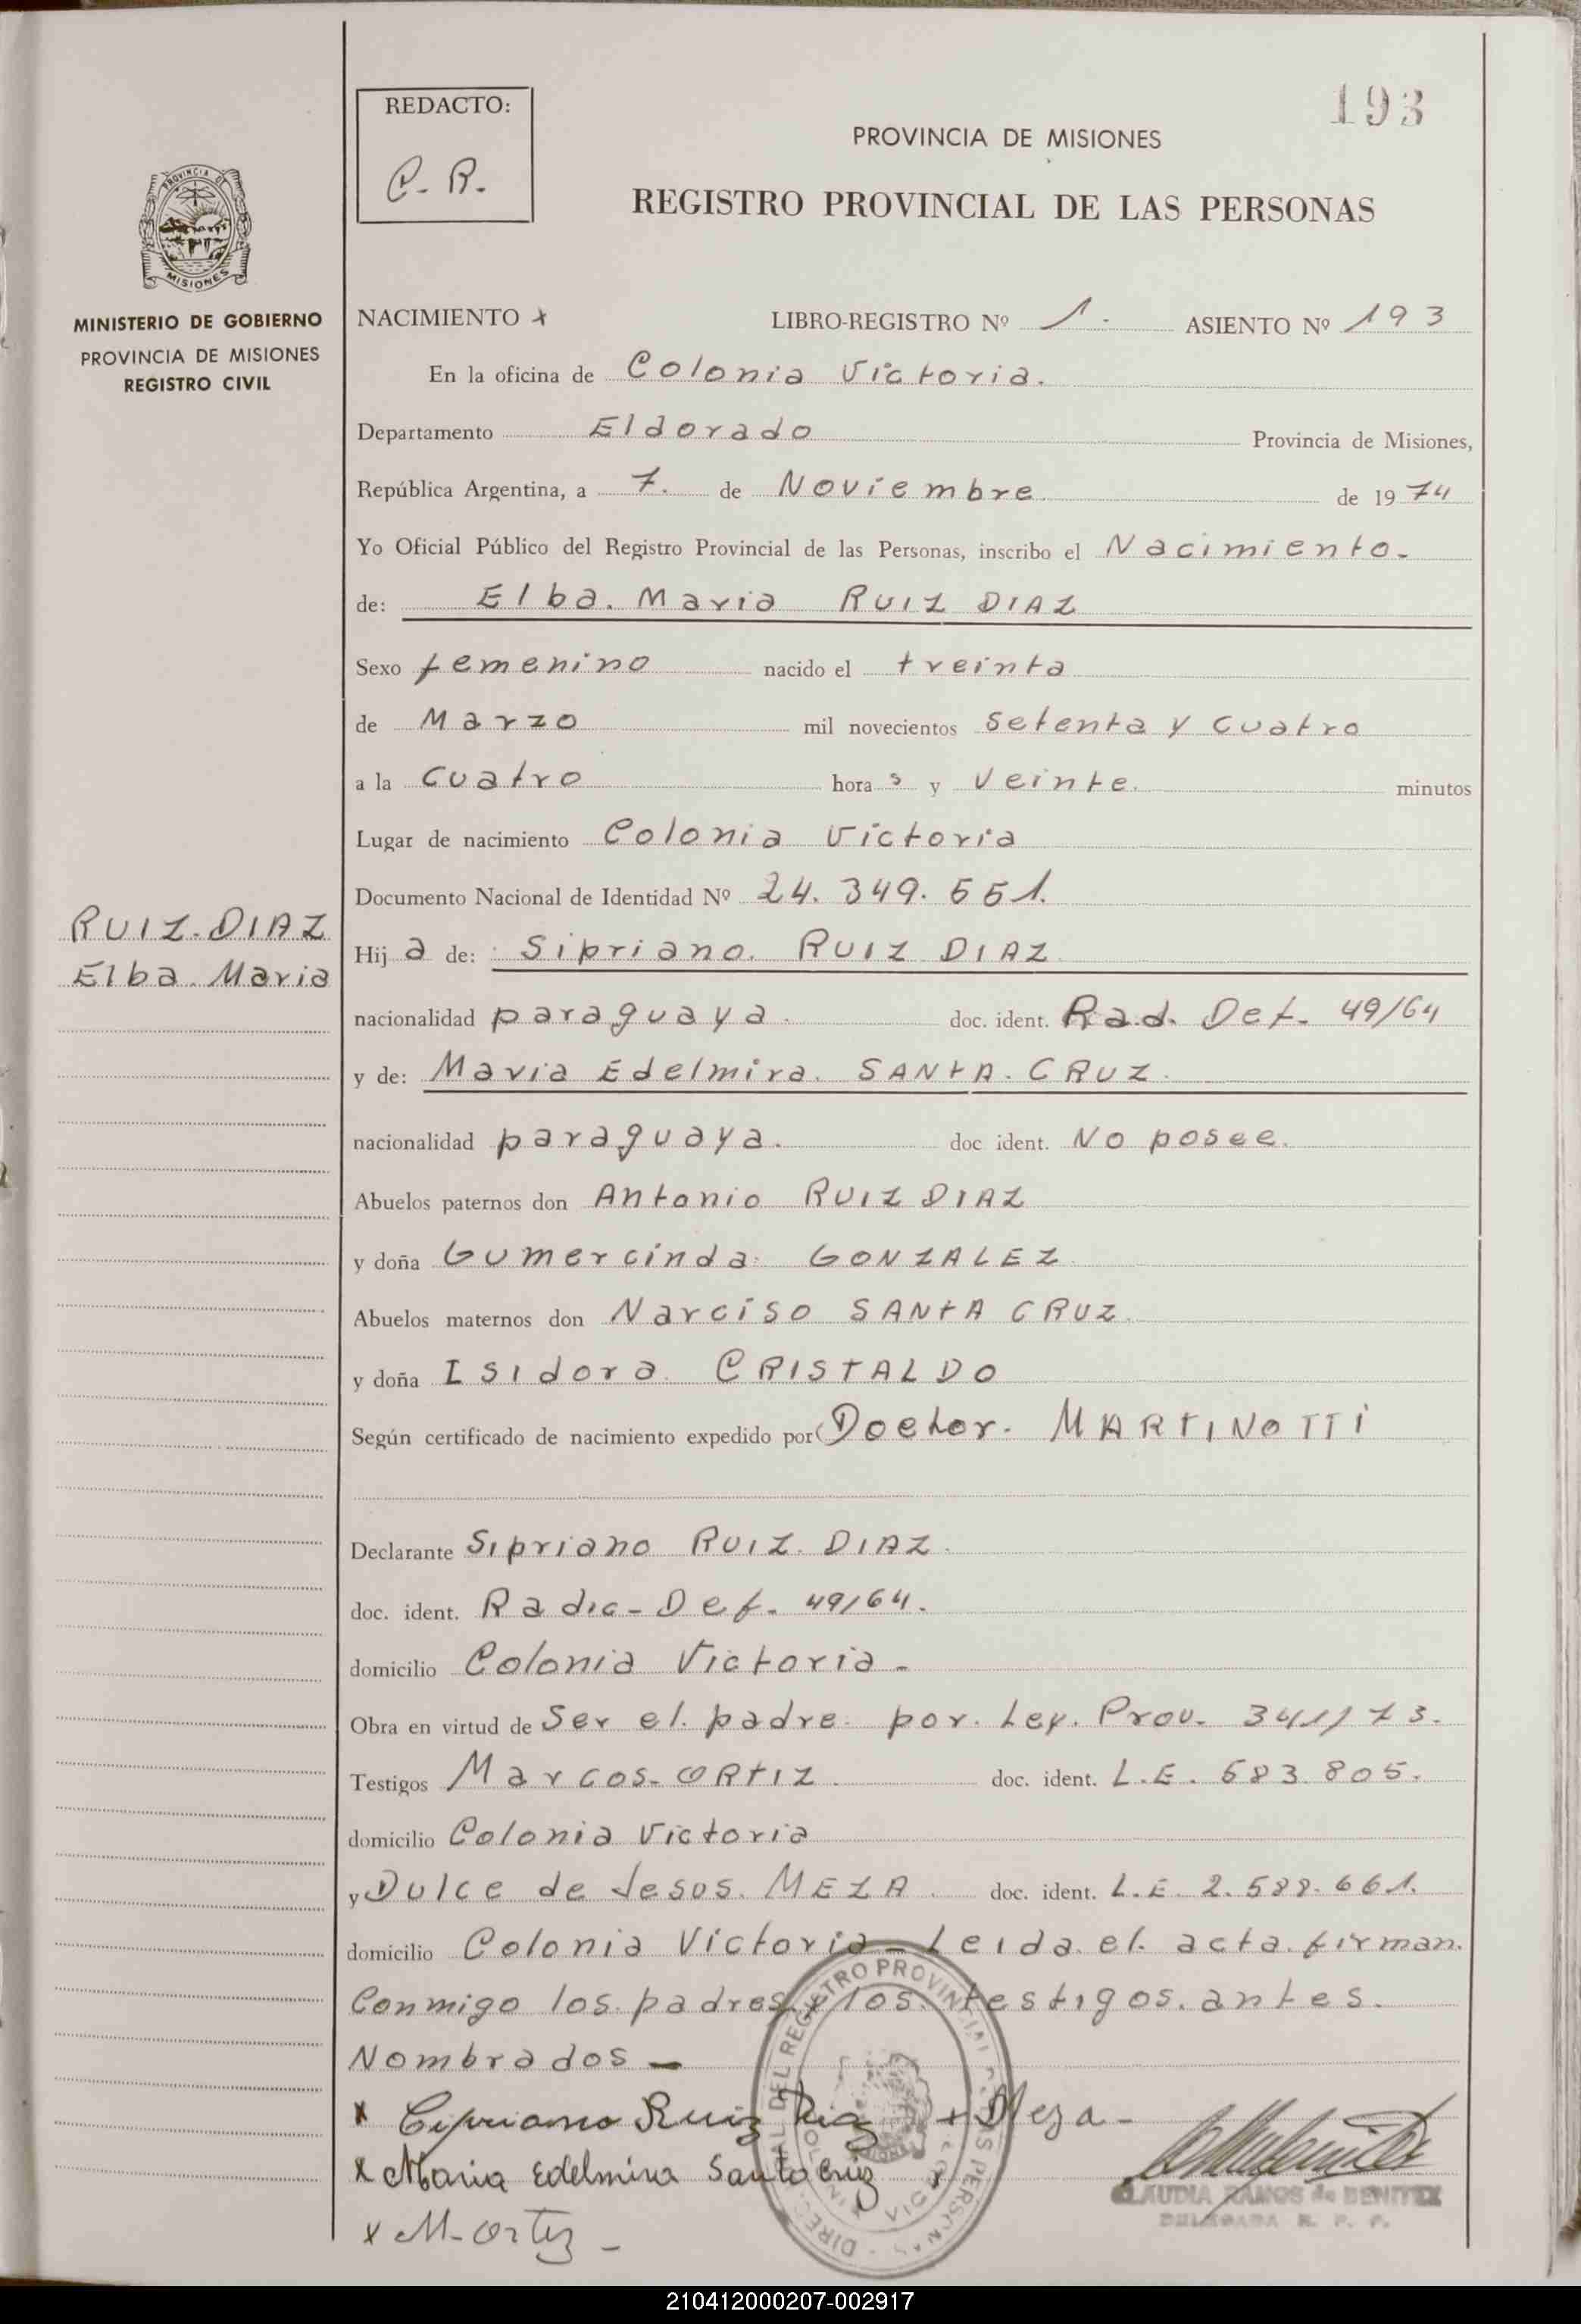 193
REDACTO:
C. R.
PROVINCIA DE MISIONES
REGISTRO PROVINCIAL DE LAS PERSONAS
PROVINCIA DE
MISIONES
MINISTERIO DE GOBIERNO
PROVINCIA DE MISIONES
REGISTRO CIVIL
NACIMIENTO x LIBRO-REGISTRO Nº 1. ASIENTO Nº 193
En la oficina de Colonia Victoria.
Departamento Eldorado Provincia de Misiones,
República Argentina, a 7. de Noviembre de 1974
Yo Oficial Público del Registro Provincial de las Personas, inscribo el Nacimiento.
de: Elba. Maria RUIZ DIAZ
Sexo femenino nacido el treinta
de Marzo mil novecientos setenta y cuatro
a la cuatro hora s y veinte. minutos
Lugar de nacimiento Colonia Victoria
Documento Nacional de Identidad Nº 24.349.551.
RUIZ-DIAZ
Elba. Maria
Hij a de: Sipriano. RUIZ DIAZ
nacionalidad paraguaya. doc. ident. Rad. Def. 49/64
y de: Maria Edelmira. SANTA. CRUZ.
nacionalidad paraguaya. doc ident. No posee.
Abuelos paternos don Antonio RUIZ DIAZ
y doña Gumercinda. GONZALEZ
Abuelos maternos don Narciso SANTA CRUZ.
y doña Isidora CRISTALDO
Según certificado de nacimiento expedido por Doctor. MARTINOTTI
Declarante Sipriano RUIZ. DIAZ.
doc. ident. Radic-Def. 49/64.
domicilio Colonia Victoria-
Obra en virtud de Ser el. padre. por. Ley. Prov. 341/73.
Testigos Marcos-ORTIZ. doc. ident. L.E. 583.805.
domicilio Colonia Victoria
y Dulce de Jesus. MEZA. doc. ident. L.E. 2.588.661.
domicilio Colonia Victoria-Leida. el. acta. firman.
Conmigo los. padres y los. testigos. antes.
Nombrados-
x Cipriano Ruiz Diaz + Meza-
x Maria Edelmira Santa Cruz x
x M-Ortiz-
CLAUDIA RAMOS de BENITEZ
DELEGADA R. P. P.
210412000207-002917